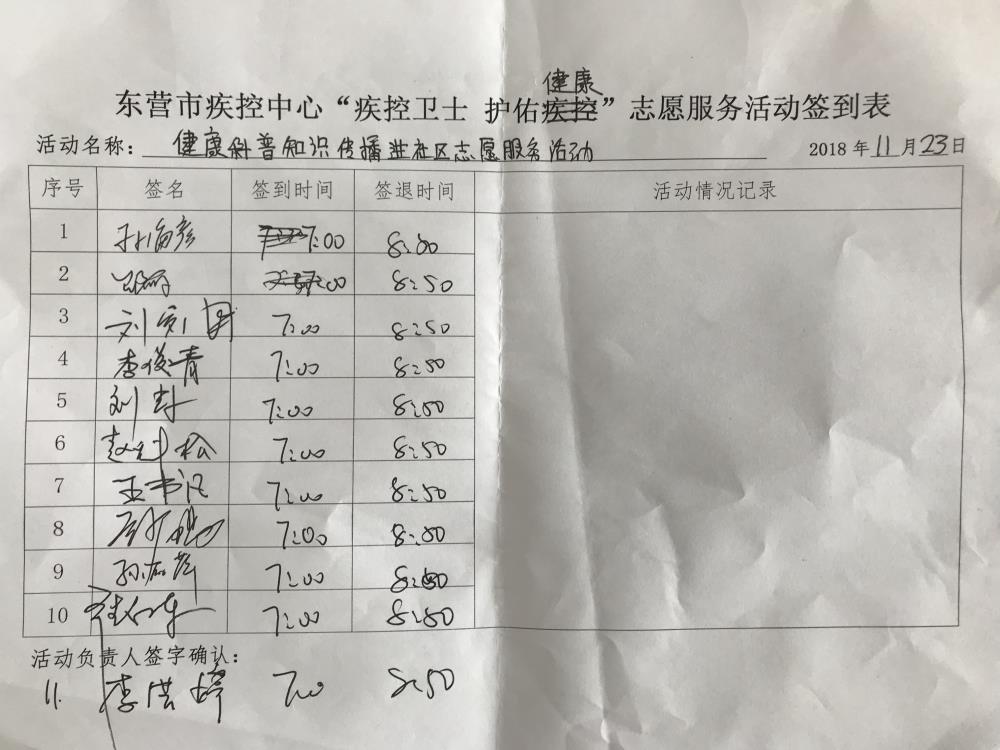 健康
东营市疾控中心“疾控卫士 护佑疾控”志愿服务活动签到表
活动名称：健康科普知识传播进社区志愿服务活动 2018年11月23日
序号 签名 签到时间 签退时间 活动情况记录
1 7:00
2 :00 8:50
3 7:00 8:50
4 李俊青 7:00 8:50
5 刘 7:00 8:50
6 赵 松 7:00 8:50
7 王书 7:00 8:50
8 7:00
9 孙 7:00
10 7:00
活动负责人签字确认：
11. 李洪婷 7:00 8:50